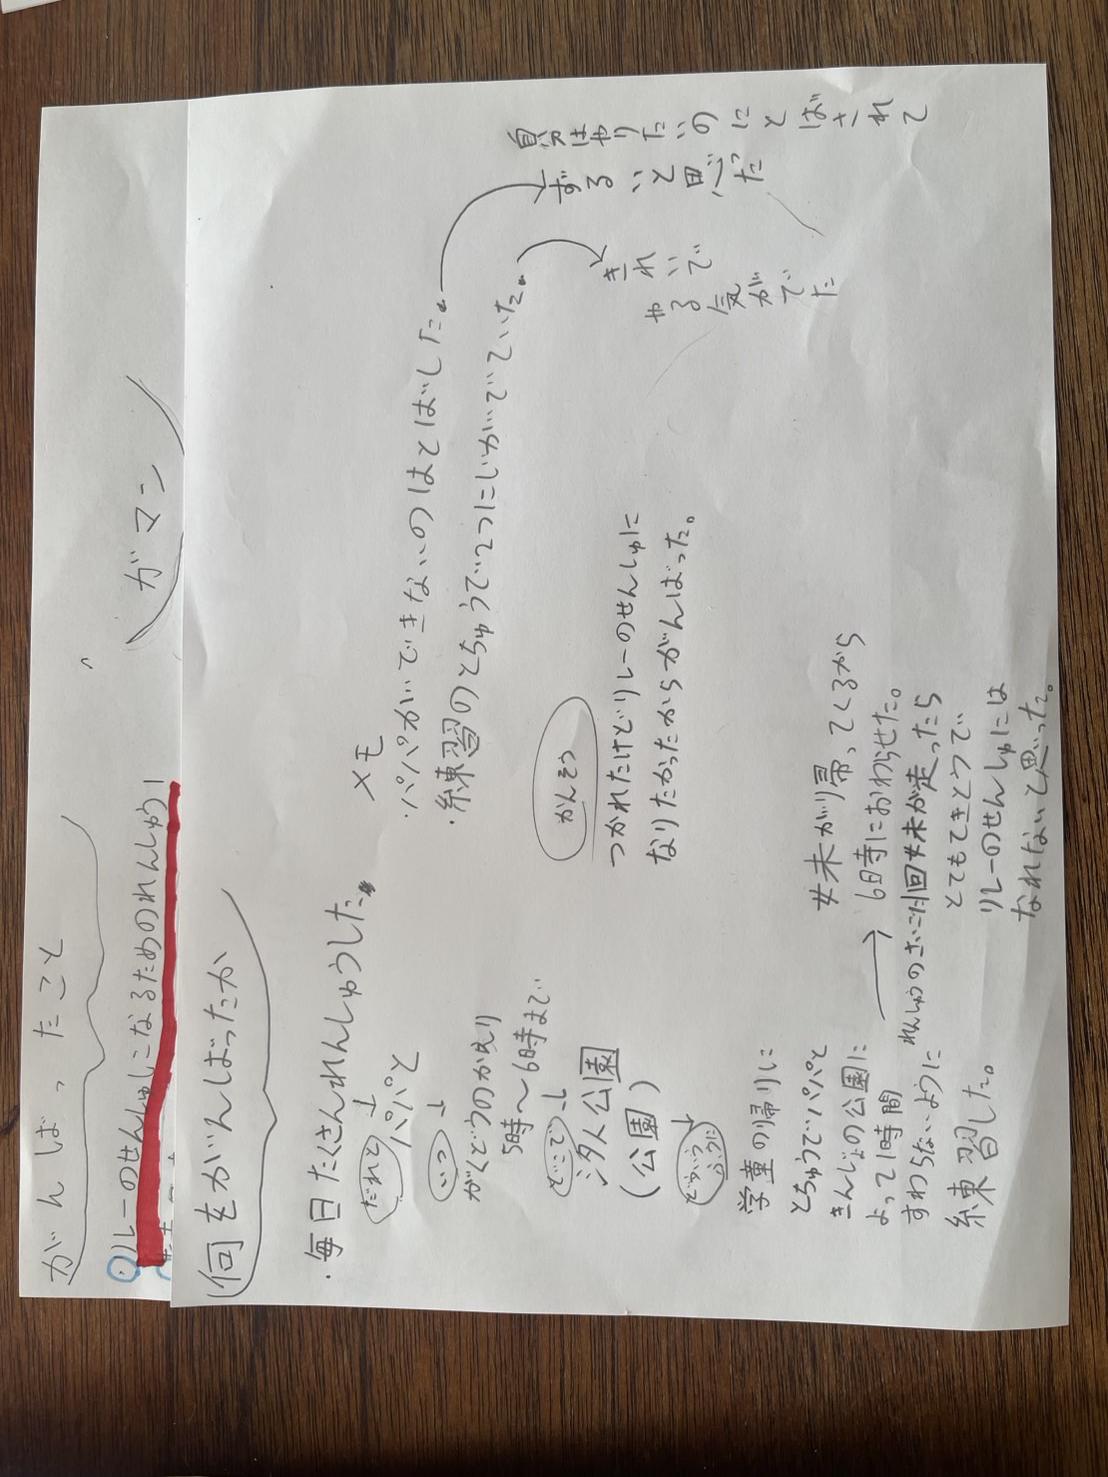 がんばったこと
リレーのせんしゅになるためのれんしゅう
ガマン
何をがんばったか
・毎日たくさんれんしゅうした。
だれと
パパと
いつ
がくどうのかえり
5時〜6時まで
どこで
汐入公園
(公園)
どういうふうに
学童の帰りに
とちゅうでパパと
きんじょの公園に
よって1時間
すわらないように
練習した。
メモ
・パパができないのはとばした。
・練習のとちゅうで2つにじがでていた。
自分はやりたいのにとばされて
ずるいと思った
きれいで
やる気がでた
かんそう
つかれたけどリレーのせんしゅに
なりたかったからがんばった。
妹が帰ってくるから
6時におわらせた。
れんしゅうのさいごに1回妹が走ったら
とてもてきとうで
リレーのせんしゅには
なれないと思った。